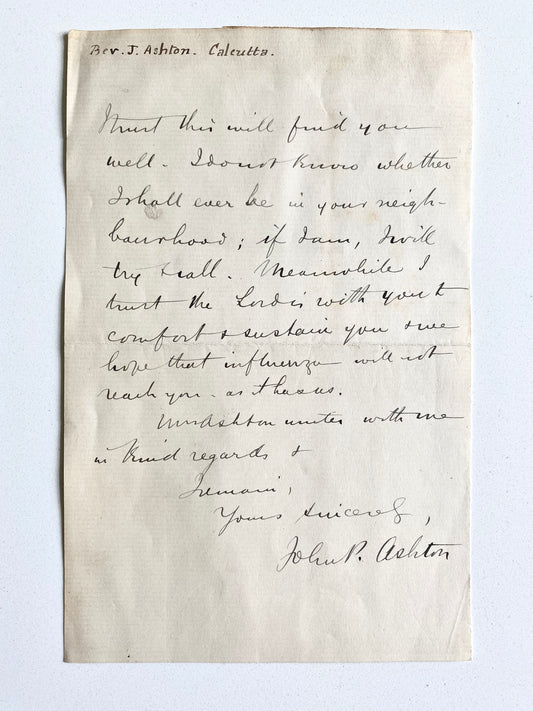 Rev. J. Ashton. Calcutta.
I trust this will find you
well. I do not know whether
I shall ever be in your neigh-
bourhood; if I am, I will
try & call. Meanwhile I
trust the Lord is with you to
comfort & sustain you & we
hope that influenza will not
reach you - as it has us.
Mrs Ashton unites with me
in kind regards &
I remain,
Yours sincerely,
John P. Ashton